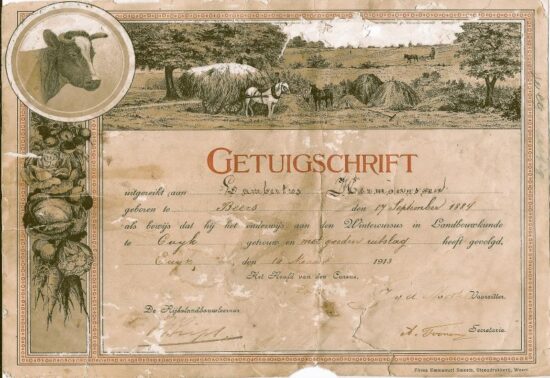 GETUIGSCHRIFT
uitgereikt aan Lambertus
geboren te Beers den 17 September 1884
als bewijs dat hij het onderwijs aan den Wintercursus in Landbouwkunde
te Cuyk getrouw en met goeden uitslag heeft gevolgd.
Cuyk den Maart 1913
Het Hoofd van den Cursus,
De Rijkslandbouwleeraar
v. d. Voorzitter.
A. Secretaris.
Firma Emmanuel Smeets, Steendrukkerij, Weert